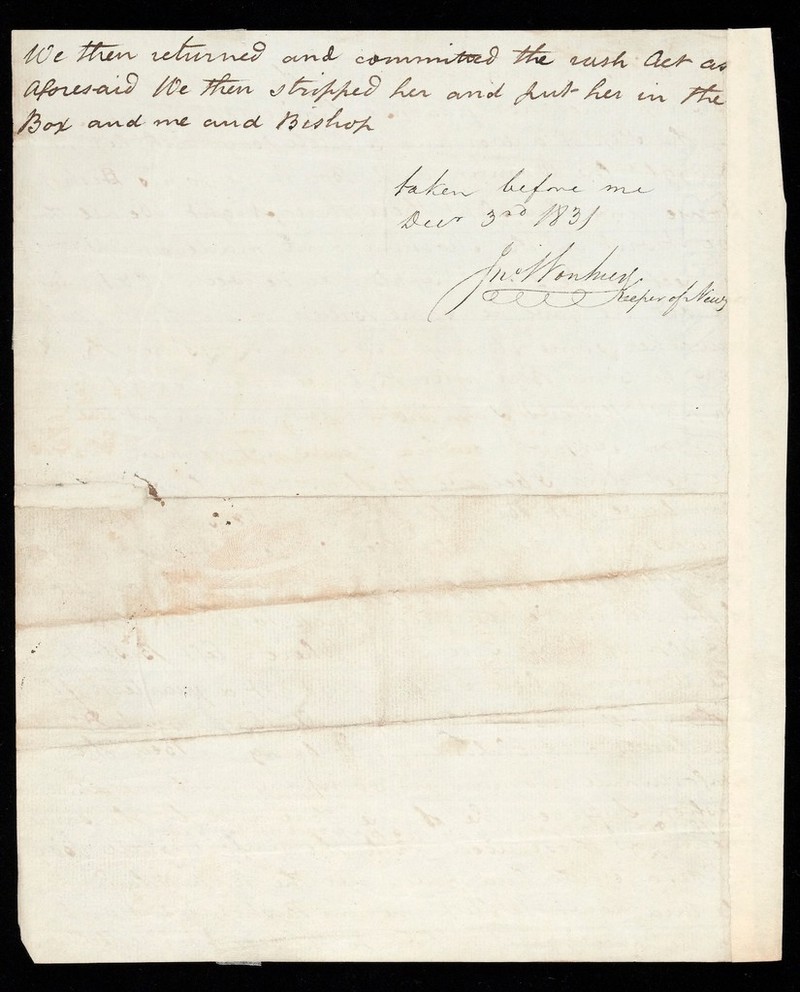 We then returned and committed the rash Act as
aforesaid We then stripped her and put her in the
Box and me and Bishop
taken before me
Decr 3rd 1831
Jno. Wontner
Keeper of Newg